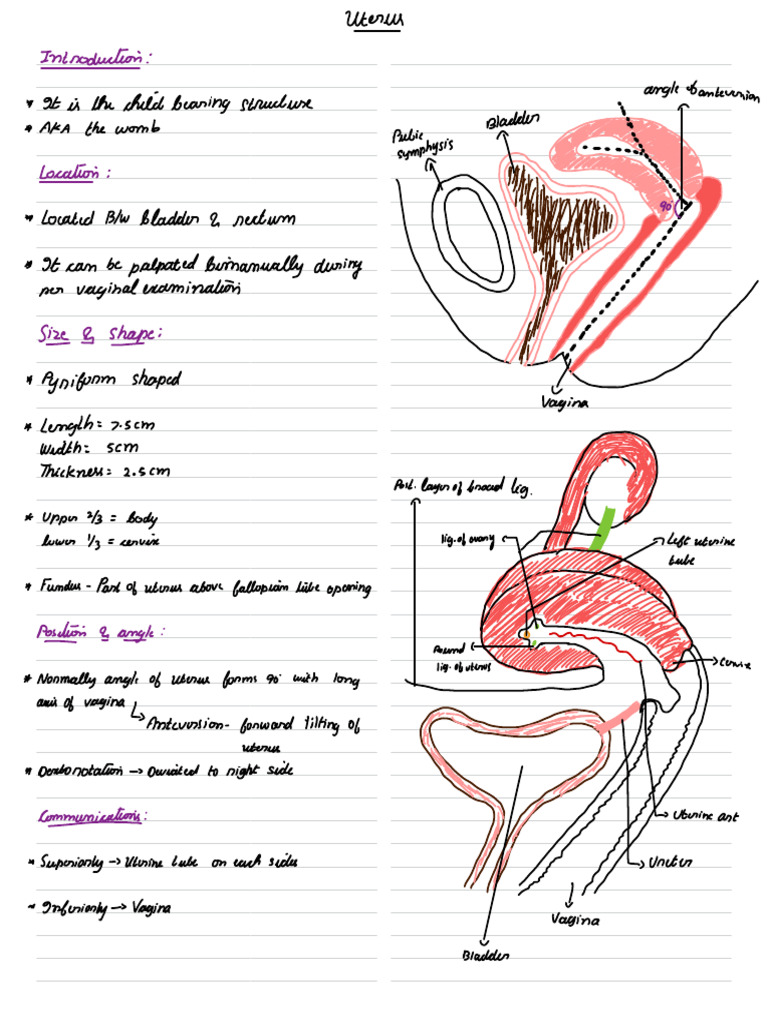 Uterus
Introduction:
* It is the child bearing structure
* AKA the womb
Location:
* Located B/w bladder & rectum
* It can be palpated bimanually during
per vaginal examination
Size & shape:
* Pyriform shaped
* Length = 7.5cm
Width = 5cm
Thickness = 2.5cm
* Upper 2/3 = body
lower 1/3 = cervix
* Fundus - Part of uterus above fallopian tube opening
Position & angle:
* Normally angle of uterus forms 90° with long
axis of vagina
↳ Anteversion - forward tilting of
uterus
* Dextrorotation → Deviated to right side
Communications:
* Superiorly → Uterine tube on each sides
* Inferiorly → Vagina
angle of anteversion
Bladder
Pubic
symphysis
90°
Vagina
Post. layer of broad lig.
lig. of ovary
Left uterine
tube
Round
lig. of uterus
Cervix
Uterine art
Ureter
Vagina
Bladder